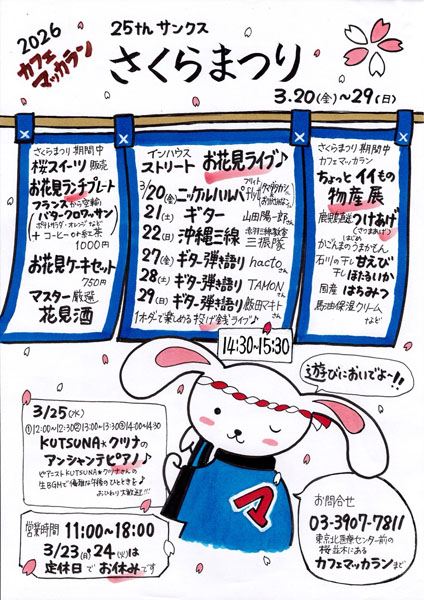 2026
カフェ
マッカラン
25th サンクス
さくらまつり
3.20(金)~29(日)
さくらまつり 期間中
桜スイーツ 販売
お花見ランチプレート
フランスから空輸
(バタークロワッサン)
+コーヒーor紅茶
1000円
お花見ケーキセット
750円
マスター厳選
花見酒
インハウス
ストリート お花見ライブ♪
3/20(金) ニッケルハルパ
21(土) ギター 山田陽一郎さん
22(日) 沖縄三線 三振隊
27(金) ギター弾き語り hactoさん
28(土) ギター弾き語り TAMONさん
29(日) ギター弾き語り 飯田マキトさん
1オーダーで楽しめる投げ銭ライブ♪
14:30~15:30
さくらまつり 期間中
カフェマッカラン
ちょっとイイもの
物産展
つけあげ
(さつまあげ)
はじめ
かごんまのうまかもん
石川の干し甘えび
干しほたるいか
国産はちみつ
馬油保湿クリーム
など
遊びにおいでよ~!!
3/25(水)
①12:00~12:30②13:00~13:30③14:00~14:30
KUTSUNA★クツナの
アンシャンテピアノ♪
ピアニストKUTSUNA★クツナさんの
生BGMで優雅な午後のひとときを♪
おひねり大歓迎!!!
マ
営業時間 11:00~18:00
3/23(月)・24(火)は
定休日でお休みです
お問合せ
03-3907-7811
東京北医療センター前の
桜並木にある
カフェマッカランまで